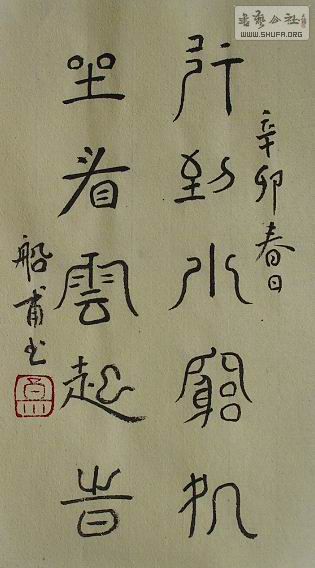 書藝公社
WWW.SHUFA.ORG
辛卯春日
行到水窮処
坐看雲起時
船甫書